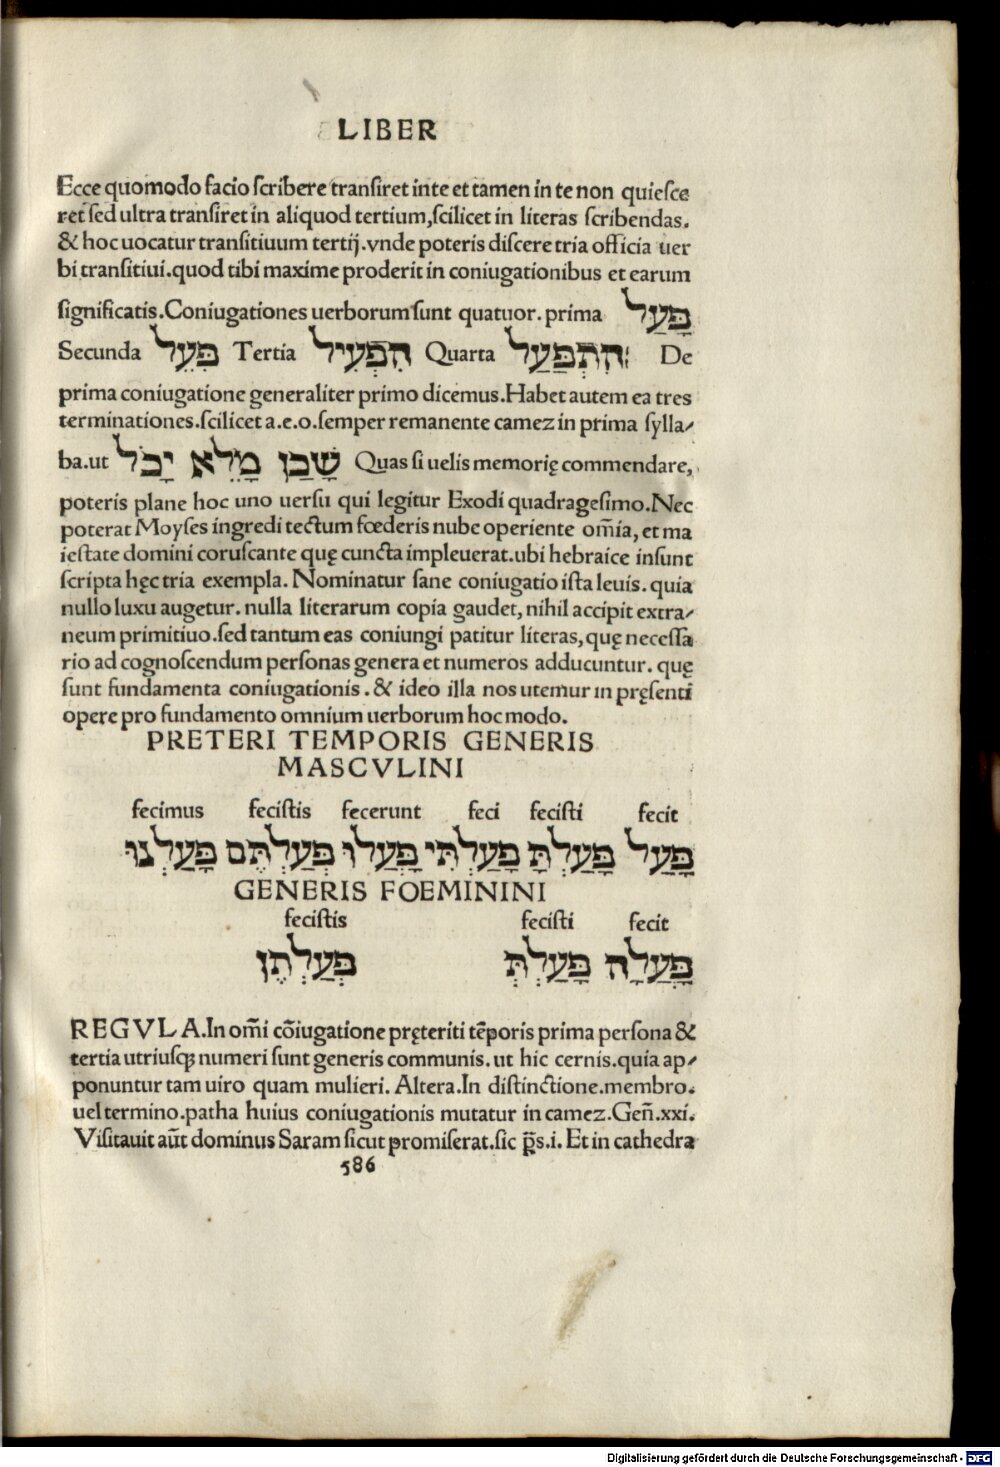 LIBER
Ecce quomodo facio scribere transiret inte et tamen in te non quiesce
ret sed ultra transiret in aliquod tertium, scilicet in literas scribendas.
& hoc uocatur transitiuum tertij. vnde poteris discere tria officia uer
bi transitiui. quod tibi maxime proderit in coniugationibus et earum
significatis. Coniugationes uerborum sunt quatuor. prima פָּעַל
Secunda פִּעֵל Tertia הִפְעִיל Quarta הִתְפַּעַל׃ De
prima coniugatione generaliter primo dicemus. Habet autem ea tres
terminationes. scilicet a.e.o. semper remanente camez in prima sylla⸗
ba. ut שָׁכַן מָלֵא יָכֹל Quas si uelis memorię commendare,
poteris plane hoc uno uersu qui legitur Exodi quadragesimo. Nec
poterat Moyses ingredi tectum fœderis nube operiente om̄ia, et ma
iestate domini coruscante quę cuncta impleuerat. ubi hebraice insunt
scripta hęc tria exempla. Nominatur sane coniugatio ista leuis. quia
nullo luxu augetur. nulla literarum copia gaudet, nihil accipit extra⸗
neum primitiuo. sed tantum eas coniungi patitur literas, quę necessa
rio ad cognoscendum personas genera et numeros adducuntur. quę
sunt fundamenta coniugationis. & ideo illa nos utemur in pręsenti
opere pro fundamento omnium uerborum hoc modo.
PRETERI TEMPORIS GENERIS
MASCVLINI
fecimus fecistis fecerunt feci fecisti fecit
פָּעַל פָּעַלְתָּ פָּעַלְתִּי פָּעְלוּ פְּעַלְתֶּם פָּעַלְנוּ
GENERIS FOEMININI
fecistis fecisti fecit
פָּעֲלָה פָּעַלְתְּ פְּעַלְתֶן
REGVLA. In om̄i cōiugatione pręteriti tēporis prima persona &
tertia utriusqꝫ numeri sunt generis communis. ut hic cernis. quia ap⸗
ponuntur tam uiro quam mulieri. Altera. In distinctione. membro.
uel termino. patha huius coniugationis mutatur in camez. Geñ. xxi.
Visitauit aūt dominus Saram sicut promiserat. sic p̄s. i. Et in cathedra
586
Digitalisierung gefördert durch die Deutsche Forschungsgemeinschaft - DFG